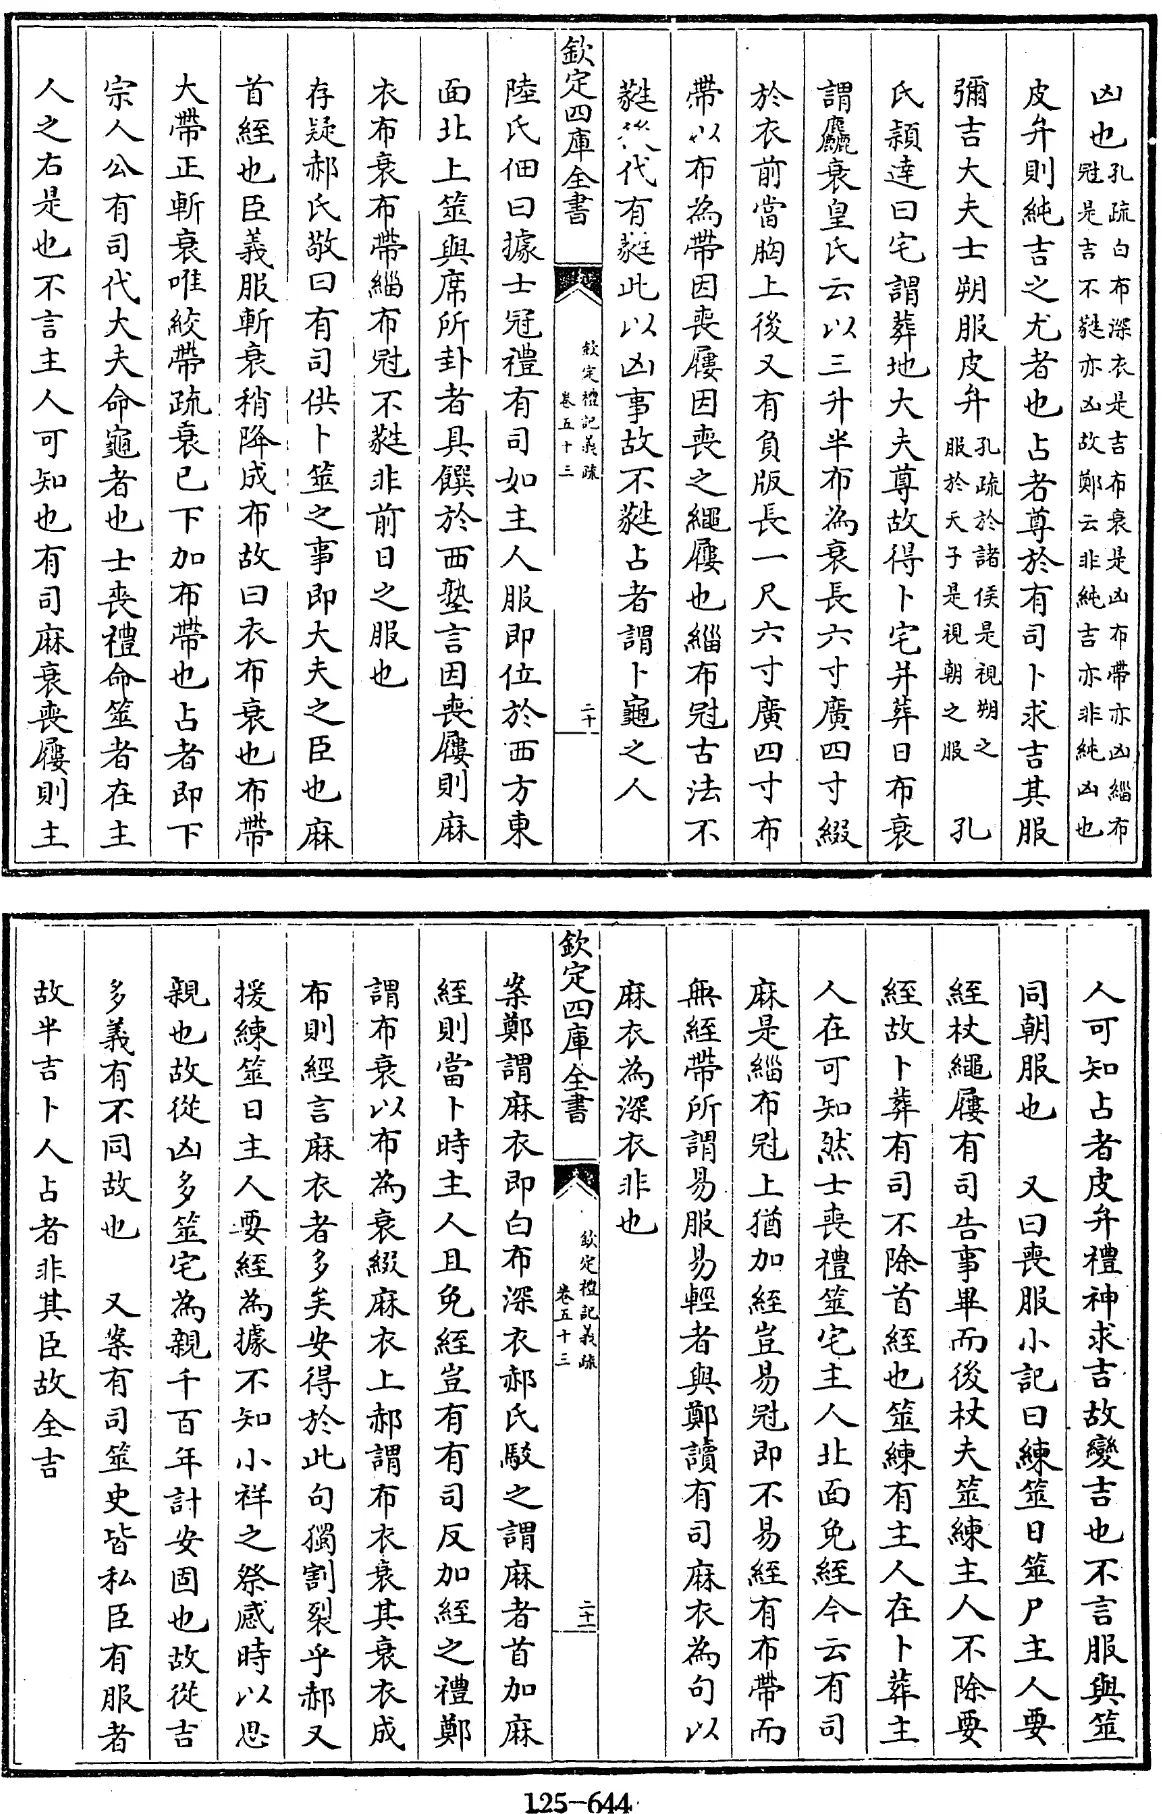 凶也孔疏白布深衣是吉布衰是凶布帶亦凶緇布
冠是吉不蕤亦凶故鄭云非純吉亦非純凶也
皮弁則純吉之尤者也占者尊於有司卜求吉其服
彌吉大夫士朔服皮弁孔疏於諸侯是視朔之
服於天子是視朝之服 孔
氏穎達曰宅謂葬地大夫尊故得卜宅并葬日布衰
謂麤衰皇氏云以三升半布為衰長六寸廣四寸綴
於衣前當胸上後又有負版長一尺六寸廣四寸布
帶以布為帶因喪屨因喪之繩屨也緇布冠古法不
蕤後代有蕤此以凶事故不蕤占者謂卜龜之人
欽定四庫全書
欽定禮記義疏
卷五十三
二十
陸氏佃曰據士冠禮有司如主人服即位於西方東
面北上筮與席所卦者具饌於西塾言因喪屨則麻
衣布衰布帶緇布冠不蕤非前日之服也
存疑郝氏敬曰有司供卜筮之事即大夫之臣也麻
首絰也臣義服斬衰稍降成布故曰衣布衰也布帶
大帶正斬衰唯絞帶疏衰已下加布帶也占者即下
宗人公有司代大夫命龜者也士喪禮命筮者在主
人之右是也不言主人可知也有司麻衰喪屨則主
人可知占者皮弁禮神求吉故變吉也不言服與筮
同朝服也 又曰喪服小記曰練筮日筮尸主人要
絰杖繩屨有司告事畢而後杖夫筮練主人不除要
絰故卜葬有司不除首絰也筮練有主人在卜葬主
人在可知然士喪禮筮宅主人北面免絰今云有司
麻是緇布冠上猶加絰豈易冠即不易絰有布帶而
無絰帶所謂易服易輕者與鄭讀有司麻衣為句以
麻衣為深衣非也
欽定四庫全書
欽定禮記義疏
卷五十三
二十一
案鄭謂麻衣即白布深衣郝氏駁之謂麻者首加麻
絰則當卜時主人且免絰豈有有司反加絰之禮鄭
謂布衰以布為衰綴麻衣上郝謂布衣衰其衰衣成
布則經言麻衣者多矣安得於此句獨割裂乎郝又
援練筮日主人要絰為據不知小祥之祭感時以思
親也故從凶多筮宅為親千百年計安固也故從吉
多義有不同故也 又案有司筮史皆私臣有服者
故半吉卜人占者非其臣故全吉
125-644